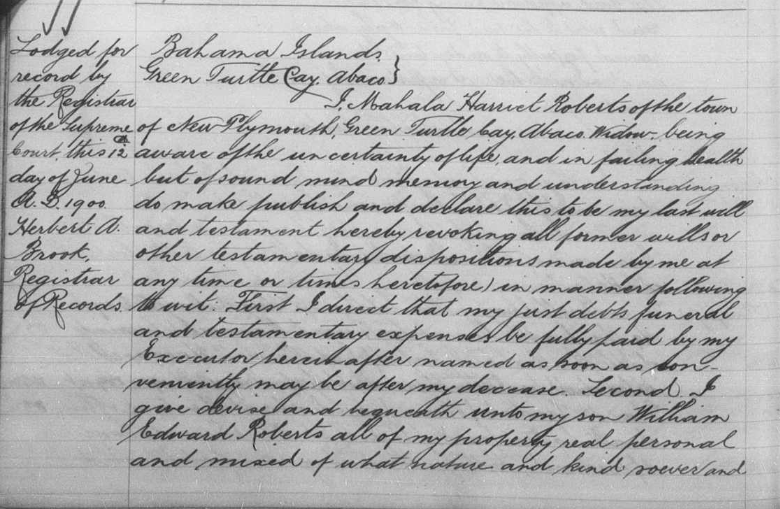 Lodged for
record by
the Registrar
of the Supreme
Court, this 12th
day of June
A.D. 1900.
Herbert A.
Brook,
Registrar
of Records.
Bahama Islands.
Green Turtle Cay. Abaco }
I, Mahala Harriet Roberts of the town
of New Plymouth, Green Turtle Cay, Abaco, Widow, being
aware of the uncertainty of life, and in failing health
but of sound mind memory and understanding
do make publish and declare this to be my last will
and testament hereby revoking all former wills or
other testamentary dispositions made by me at
any time or times heretofore, in manner following
to wit: First I direct that my just debts funeral
and testamentary expenses be fully paid by my
Executor hereinafter named as soon as con-
veniently may be after my decease. Second I
give devise and bequeath unto my son William
Edward Roberts all of my property real personal
and mixed of what nature and kind soever and